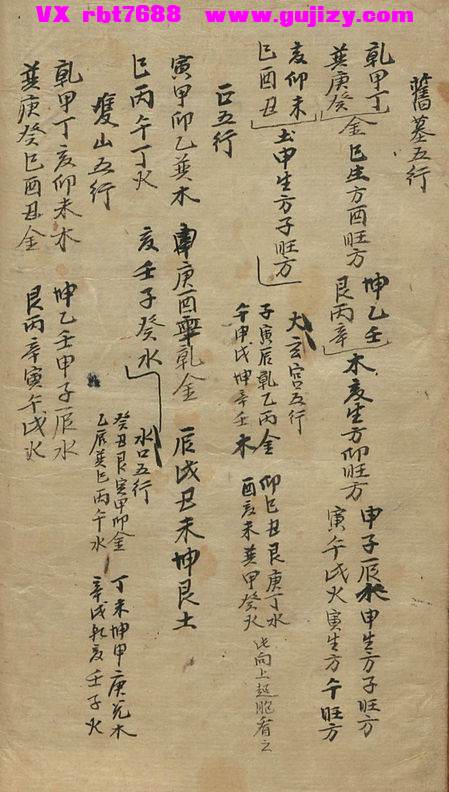 VX rbt7688 www.gujizy.com
舊墓五行
乾甲丁
巽庚癸 金 巳生方酉旺方
坤乙壬
艮丙辛 木亥生方卯旺方
申子辰水申生方子旺方
寅午戌火寅生方午旺方
亥卯未
巳酉丑 土申生方子旺方
大玄宮五行
子寅辰乾乙丙金
午申戌坤辛壬木
卯巳丑艮庚丁水
酉亥未巽甲癸火
此向上起胞看之
正五行
寅甲卯乙巽木
庚酉辛乾金
辰戌丑未坤艮土
巳丙午丁火
亥壬子癸水
水口五行
癸丑艮寅甲卯金
乙辰巽巳丙午水
丁未坤申庚兌木
辛戌乾亥壬子火
雙山五行
乾甲丁亥卯未木
坤乙壬申子辰水
巽庚癸巳酉丑金
艮丙辛寅午戌火